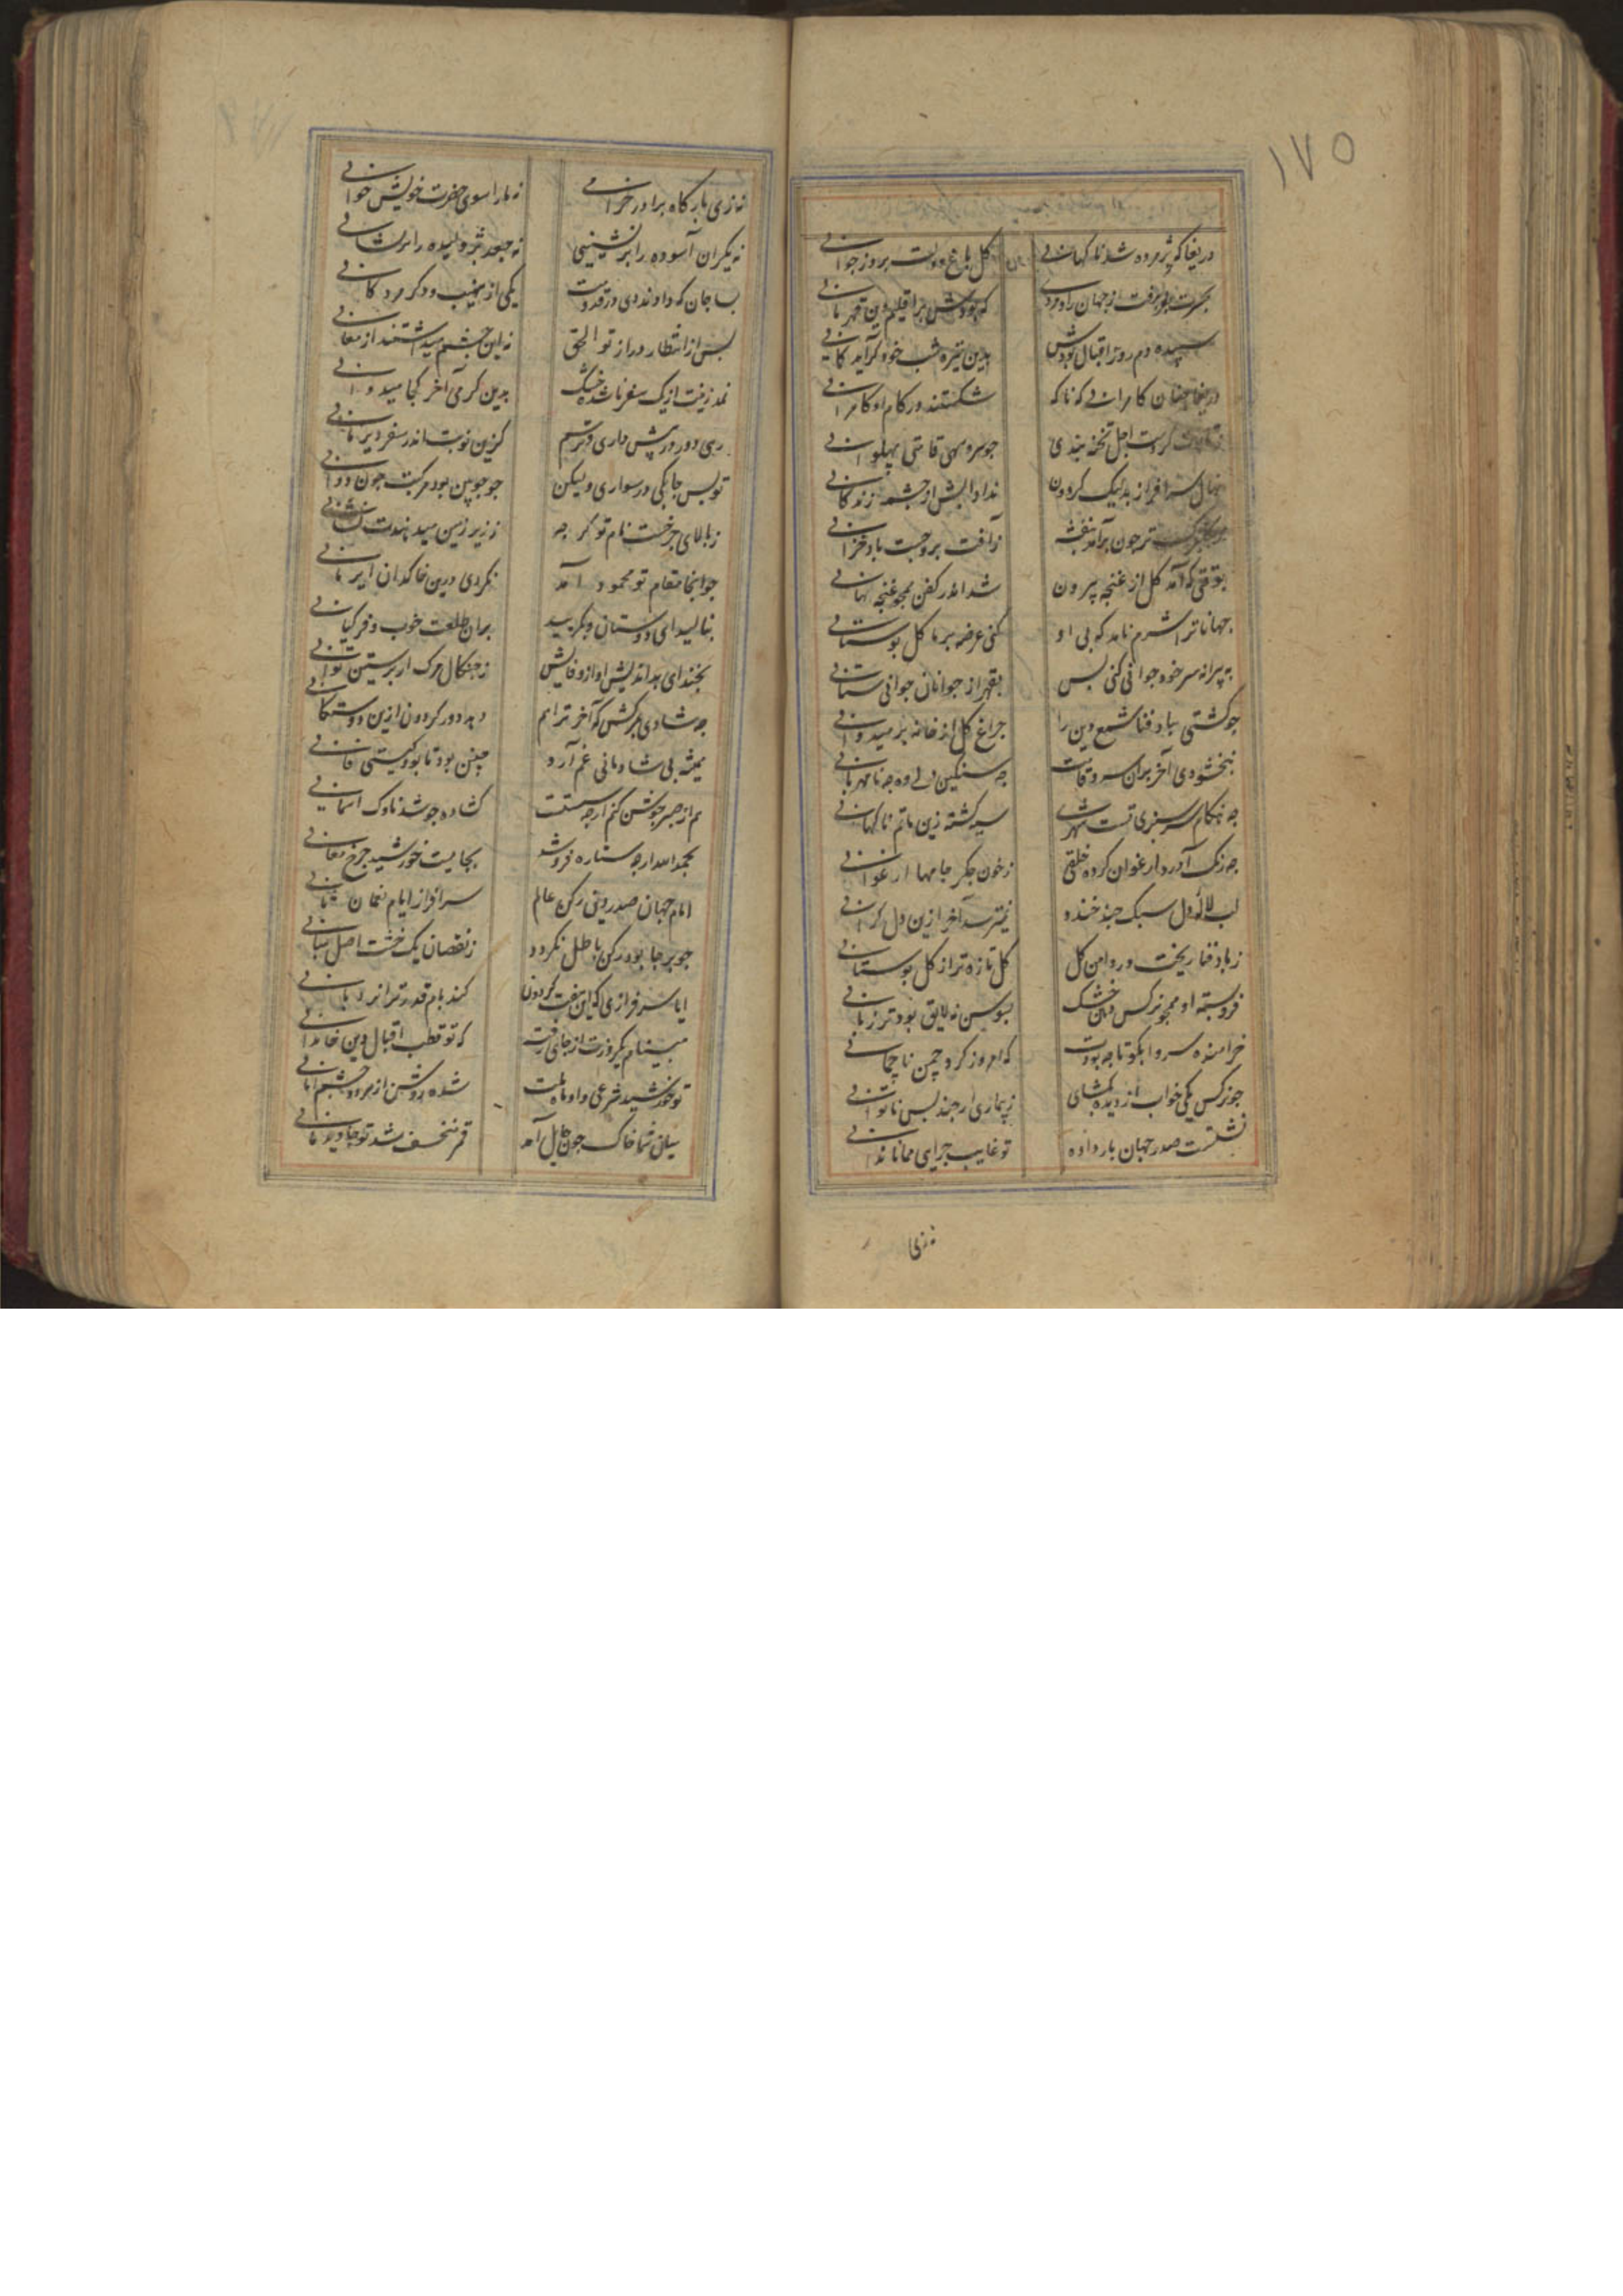 ١٧٥
دریغا که پژمرده شد ناکهانی کل باغ دولت بروز جوانی
بحسرت برفت از جهان رادمردی که بودش بر اقلیم دین قهرمانی
سپیده دم روز اقبال بودش بدین تیره شب خود کرآید کمانی
دریغا چنان کامرانی که ناکه شکستند در کام او کامرانی
دست اجل تخته بندی جو سرو سهی قامتی پهلوانی
نهال سرافراز بد لیک کردون نداد آبش از جشمه زندکانی
تر جون برآمد بنفشه ز آفت بروجست باد خزانی
بوقتی که آمد کل از غنجه بیرون شد اندر کفن همجو غنجه نهانی
جهانا ترا شرم نامد که بی او کنی عرضه بر ما کل بوستانی
به پیرانه سر خود جوانی کنی بس بقهر از جوانان جوانی ستانی
جو کشتی بباد فنا شمع دین را جراغ کل از خانه بر میدوانی
نبخشودی آخر بران سرو قامت جه سنکین دلی وه جه نامهربانی
جه هنکام سرسبزی تست شهری سیه کشته زین ماتم ناکهانی
جه رنک آورد ارغوان کرده خلقی ز خون جکر جامها ارغوانی
لب لاله و دل سبک جند خندد نمیترسد آخر ازین دل کرانی
ز باد فنا ریخت در دامن کل کل تازه تر از کل بوستانی
فروبسته او همجو نرکس دهن خشک بسوسن نه لایق بود تر زبانی
خرامنده سروا بکو تا جه بودت که امروز کرد چمن ناچمانی
جو نرکس یکی خواب از دیده بکشای ز بیماری ار جند بس ناتوانی
نشستست صدر جهان بار داده تو غایب جرایی همانا ندانی
نه زی
نه زی بارکاه برادر خرامی نه ما را سوی حضرت خویش خوانی
نه یکران آسوده را برنشینی نه جعد ژولیده را برفشانی
بسا جان که دادند دی در قدومت یکی از نهیب و دکر مردکانی
بس از انتظار دراز تو الحق نه این جشم میداشتند از معانی
نمد زینت از یک سفر ناشده خشک بدین کرمی آخر کجا میدوانی
رهی دور در پیش داری و ترسم کزین نوبت اندر سفر دیر مانی
تو بس جابکی در سواری ولیکن جو جوبین بود مرکبت جون دوانی
ز بالای جرخست نام تو کر جه ز زیر زمین میدهندت نشانی
جو آنجا مقام تو محمود آمد نکردی درین خاکدان ایرمانی
بنالید ای دوستان و بکریید بران طلعت خوب و فر کیانی
بخند ای بداندیش او از وفاتش ز جنکال مرک ار برستن توانی
جه شادی بمرکش که آخر ترا هم دهد دور کردون ازین دوستکانی
همیشه بی شادمانی غم آرد چنین بود تا بود کیتی فانی
هم از صبر جوشن کنم ار جه سستست کشاده جو شد ناوک آسمانی
بحمد الله ار جه ستاره فروشد بجایست خورشید جرخ معانی
امام جهان صدر دین رکن عالم سرافراز ایام نعمان ثانی
جو بر جا بود رکن باطل نکردد ز نقصان یک خشت اصل مبانی
ایا سرفرازی که این هفت کردون کند بام قدر ترا نردبانی
که تو قطب اقبال دین خاندانی
تو خورشید شرعی و او ماه ملت شده روشن از هر دو جشم امانی
میان شما خاک جون حایل آمد قمر منخسف شد تو جاوید مانی